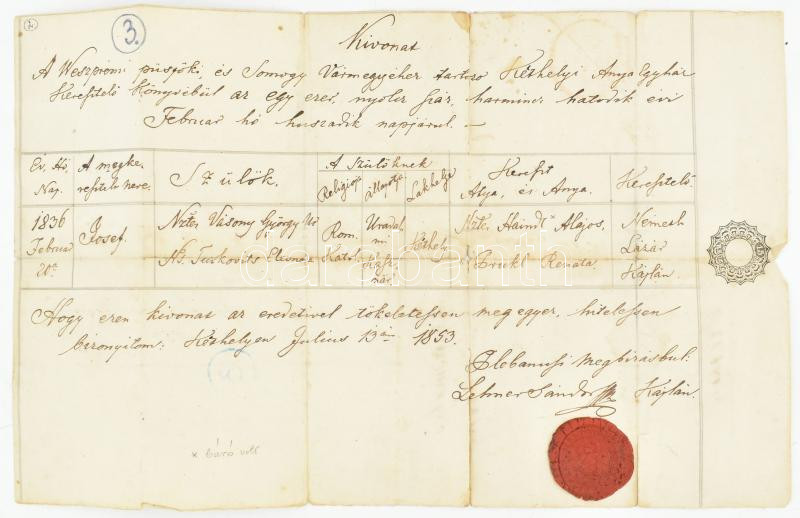 2.
3.
Kivonat
A Weszprémi püspöki, és Somogy Vármegyéhez tartozo Kezhelyi Anya Egyház
Keresztelő Könyvébül az egy ezer, nyolcz száz, harmincz hatodik évi
Februar hó huszadik napjárul. —
Ev, Hó, Nap.
A megkereszteltt neve.
Szülők.
A Szülőknek
Religioja
állapotja
Lakhelye
Kereszt Atya, és Anya.
Keresztelő.
1836 Februar 20án
Josef.
Nztes Vásony György Ur
Turkovits Eleonóra
Rom. Kath.
Uradalmi Kasznár.
Kezhely
Ntk. Haindl * Alajos,
Brückl Renata.
Németh Lázár Káplán.
Hogy ezen kivonat az eredetivel tökéletessen meg egyez, hitelessen
bizonyitom: Kezhelyen Julius 13án 1853.
Plebanusi Megbizásbul:
Lehner Sándor Káplán.
* báró volt
darabanth